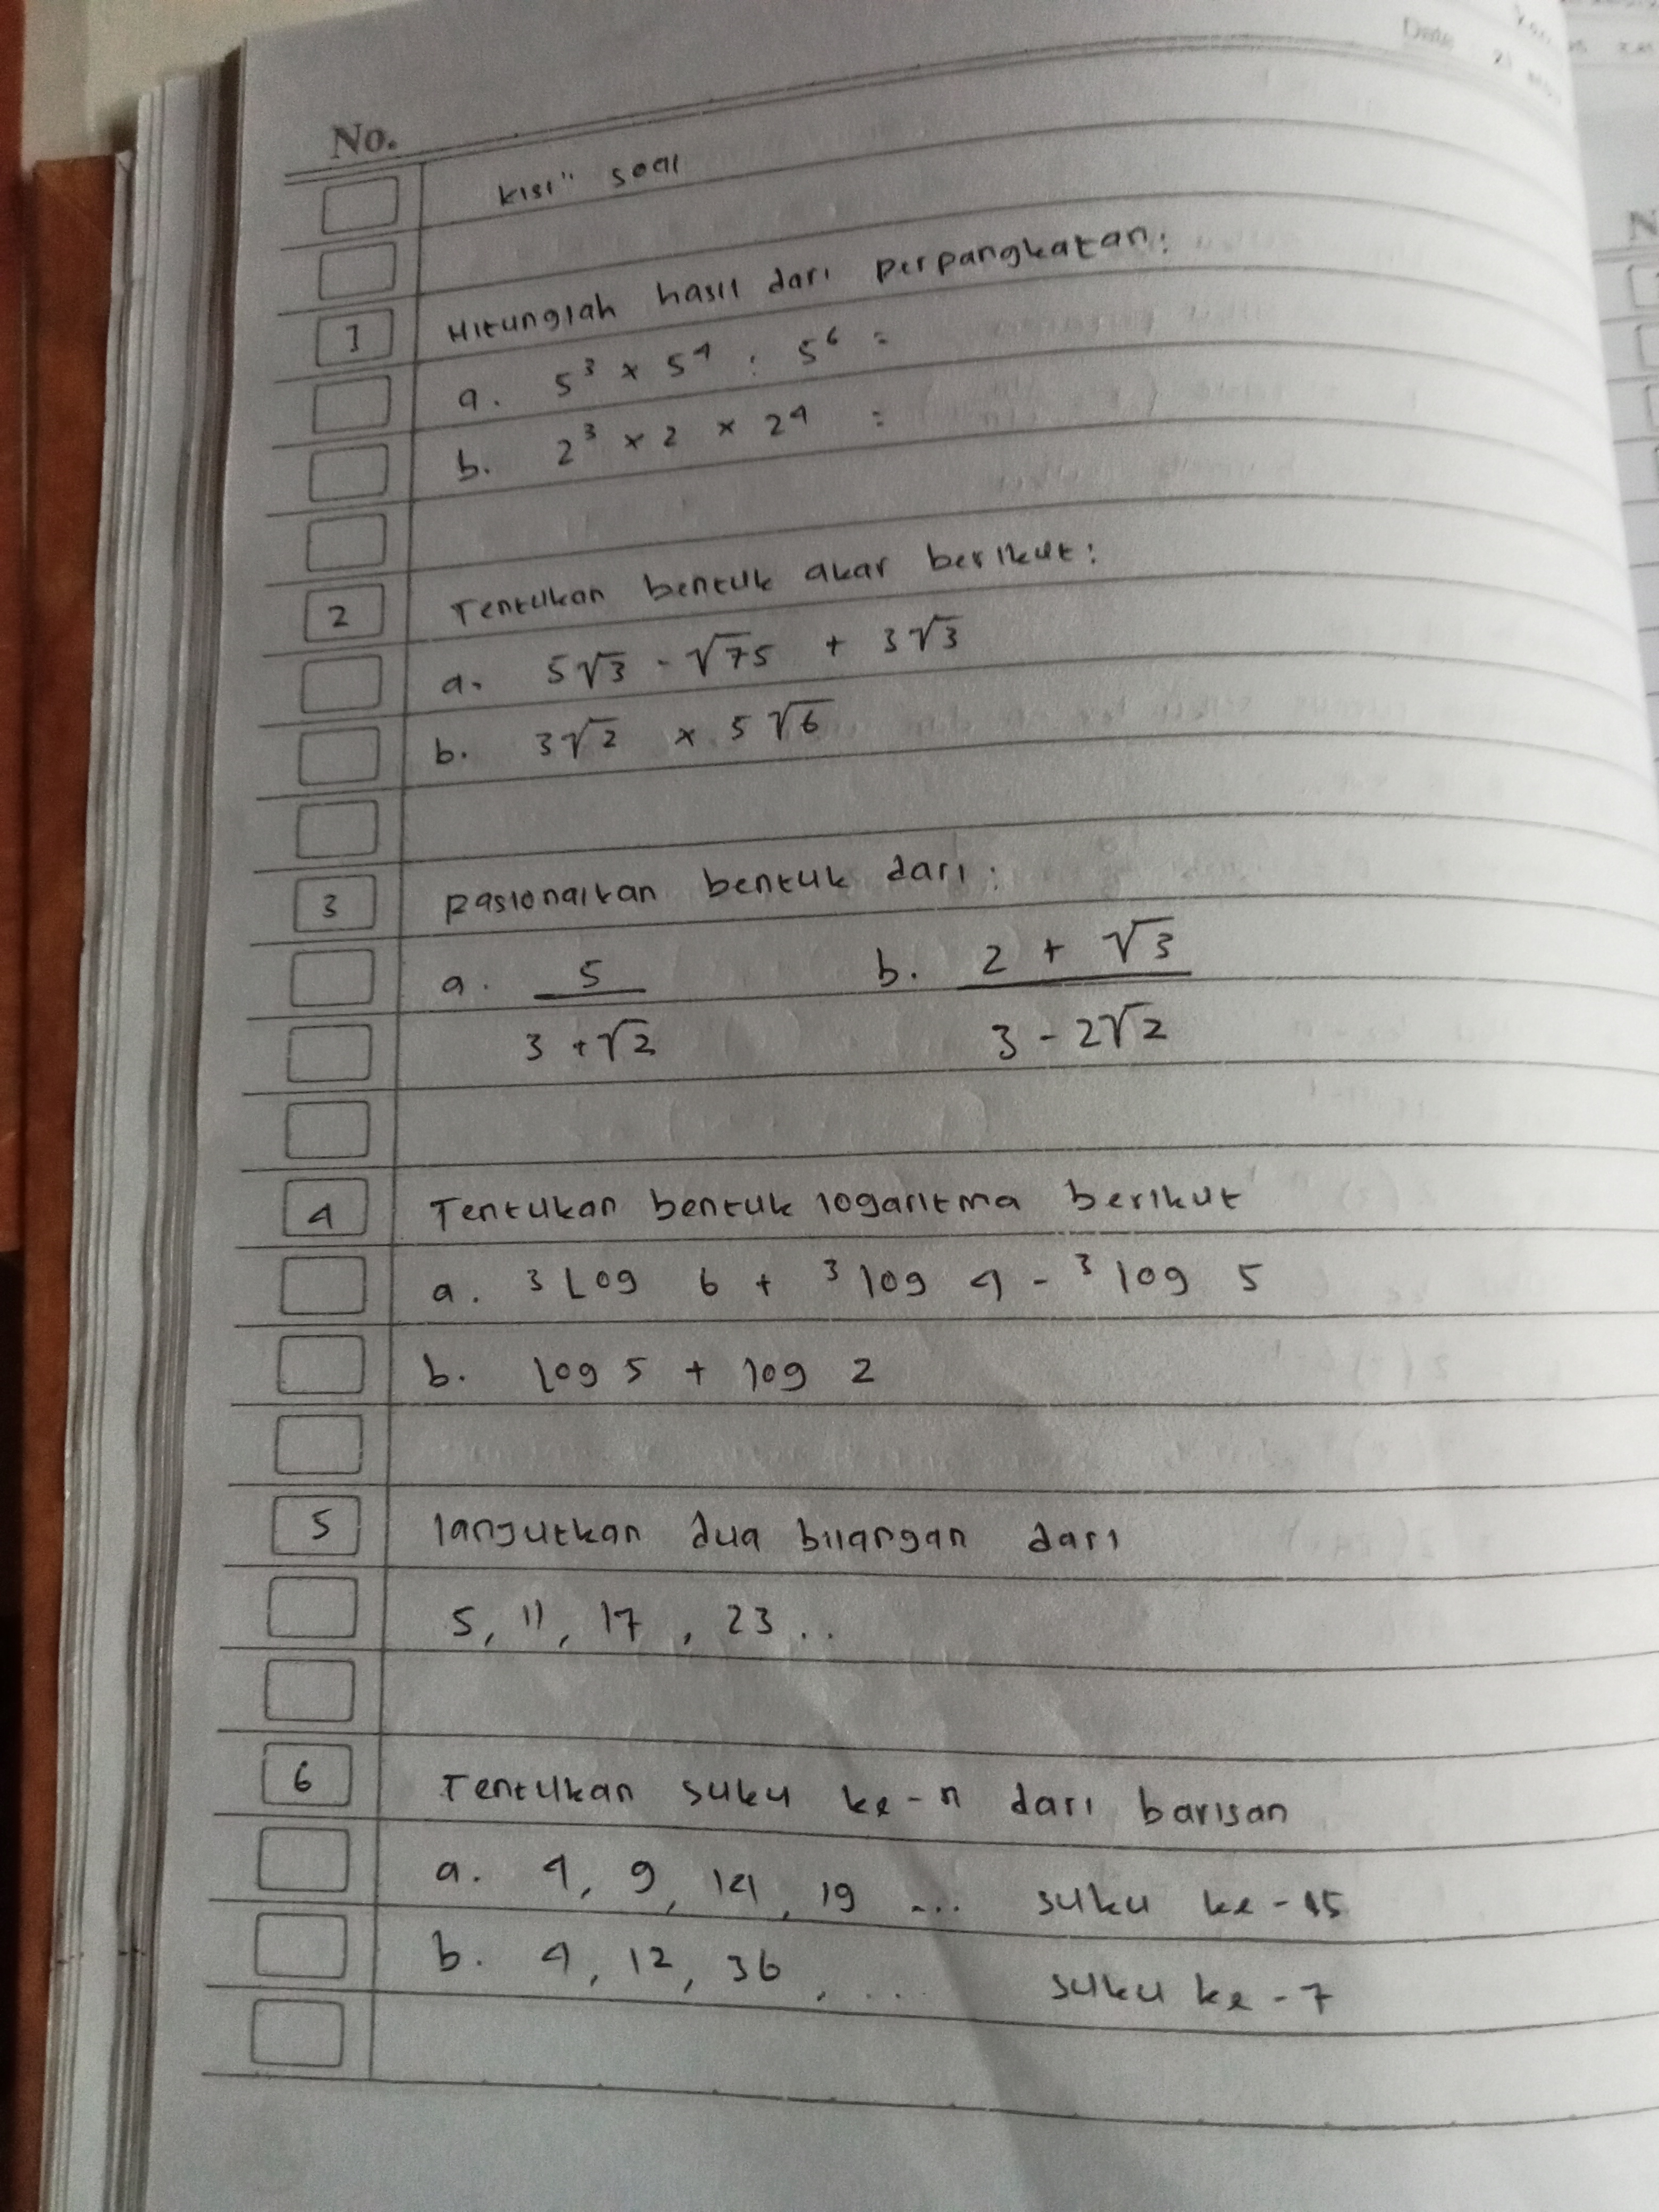 Date
No.
kisi" soal
1 Hitunglah hasil dari perpangkatan:
a. 5³ x 5⁴ : 5⁶ =
b. 2³ x 2 x 2⁴ =
2 Tentukan bentuk akar berikut:
a. 5√3 - √75 + 3√3
b. 3√2 x 5√6
3 Rasionalkan bentuk dari:
a. 5 / 3 + √2 b. 2 + √3 / 3 - 2√2
4 Tentukan bentuk logaritma berikut
a. ³Log 6 + ³log 4 - ³log 5
b. Log 5 + log 2
5 lanjutkan dua bilangan dari
5, 11, 17, 23..
6 Tentukan suku ke-n dari barisan
a. 4, 9, 14, 19 ... suku ke-15
b. 4, 12, 36, ... suku ke-7